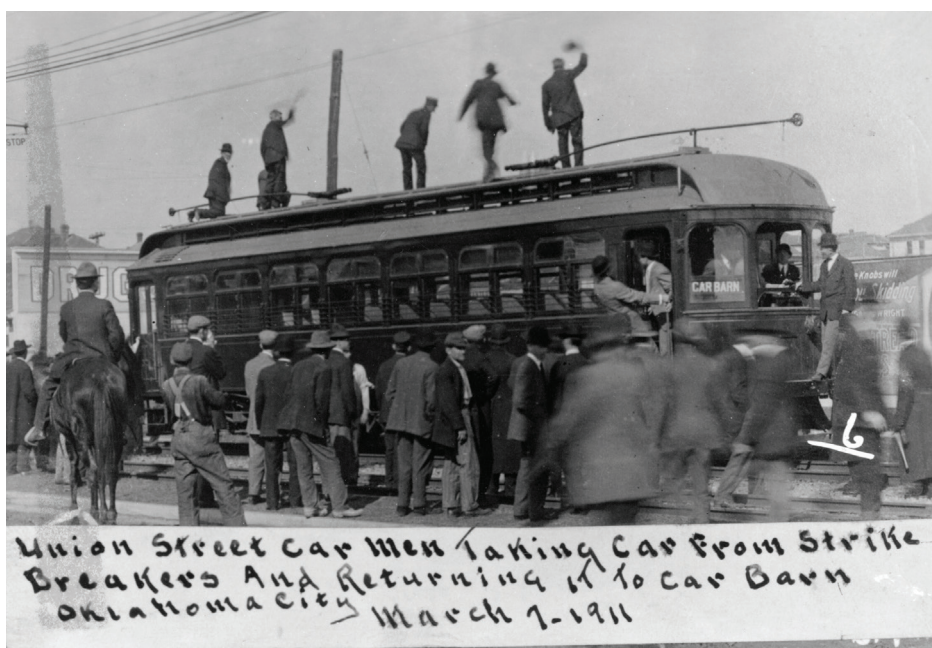 STOP
DRUG
CAR BARN
Knobs will
Skidding
6
Union Street Car Men Taking Car From Strike
Breakers And Returning it To Car Barn
Oklahoma City March 7-1911